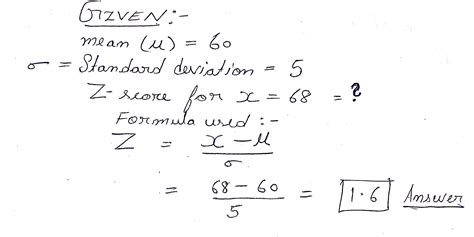 GIVEN:-
mean (μ) = 60
σ = Standard deviation = 5
Z-score for x = 68 = ?
Formula used :-
Z = x - μ / σ
= 68 - 60 / 5 = 1.6 Answer